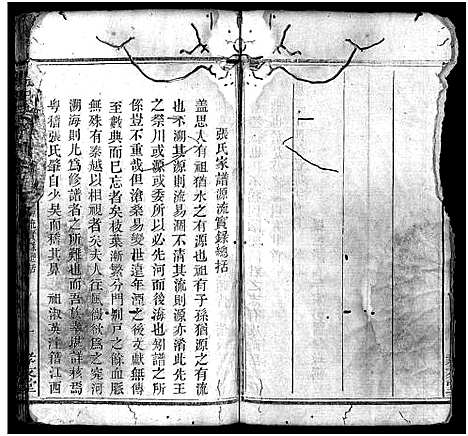 張氏家譜源流實錄總括
蓋思人有祖猶水之有源也祖有子孫猶源之有流
也不溯其源則流易涸不清其流則源亦淆此先王
之祭川或源或委所以必先河而後海也矧譜之所
係豈不重哉但滄桑易變世遠年湮之後文獻無傳
至數典而已忘者矣枝葉漸繁分門別戸之餘血脈
無殊有秦越以相視者矣夫人往風微欲爲之窮河
溯海則凡爲修譜者之所難也而吾族葉詳核焉
粵稽張氏肇自少昊而稽其鼻祖淑英注籍江西
孝友堂